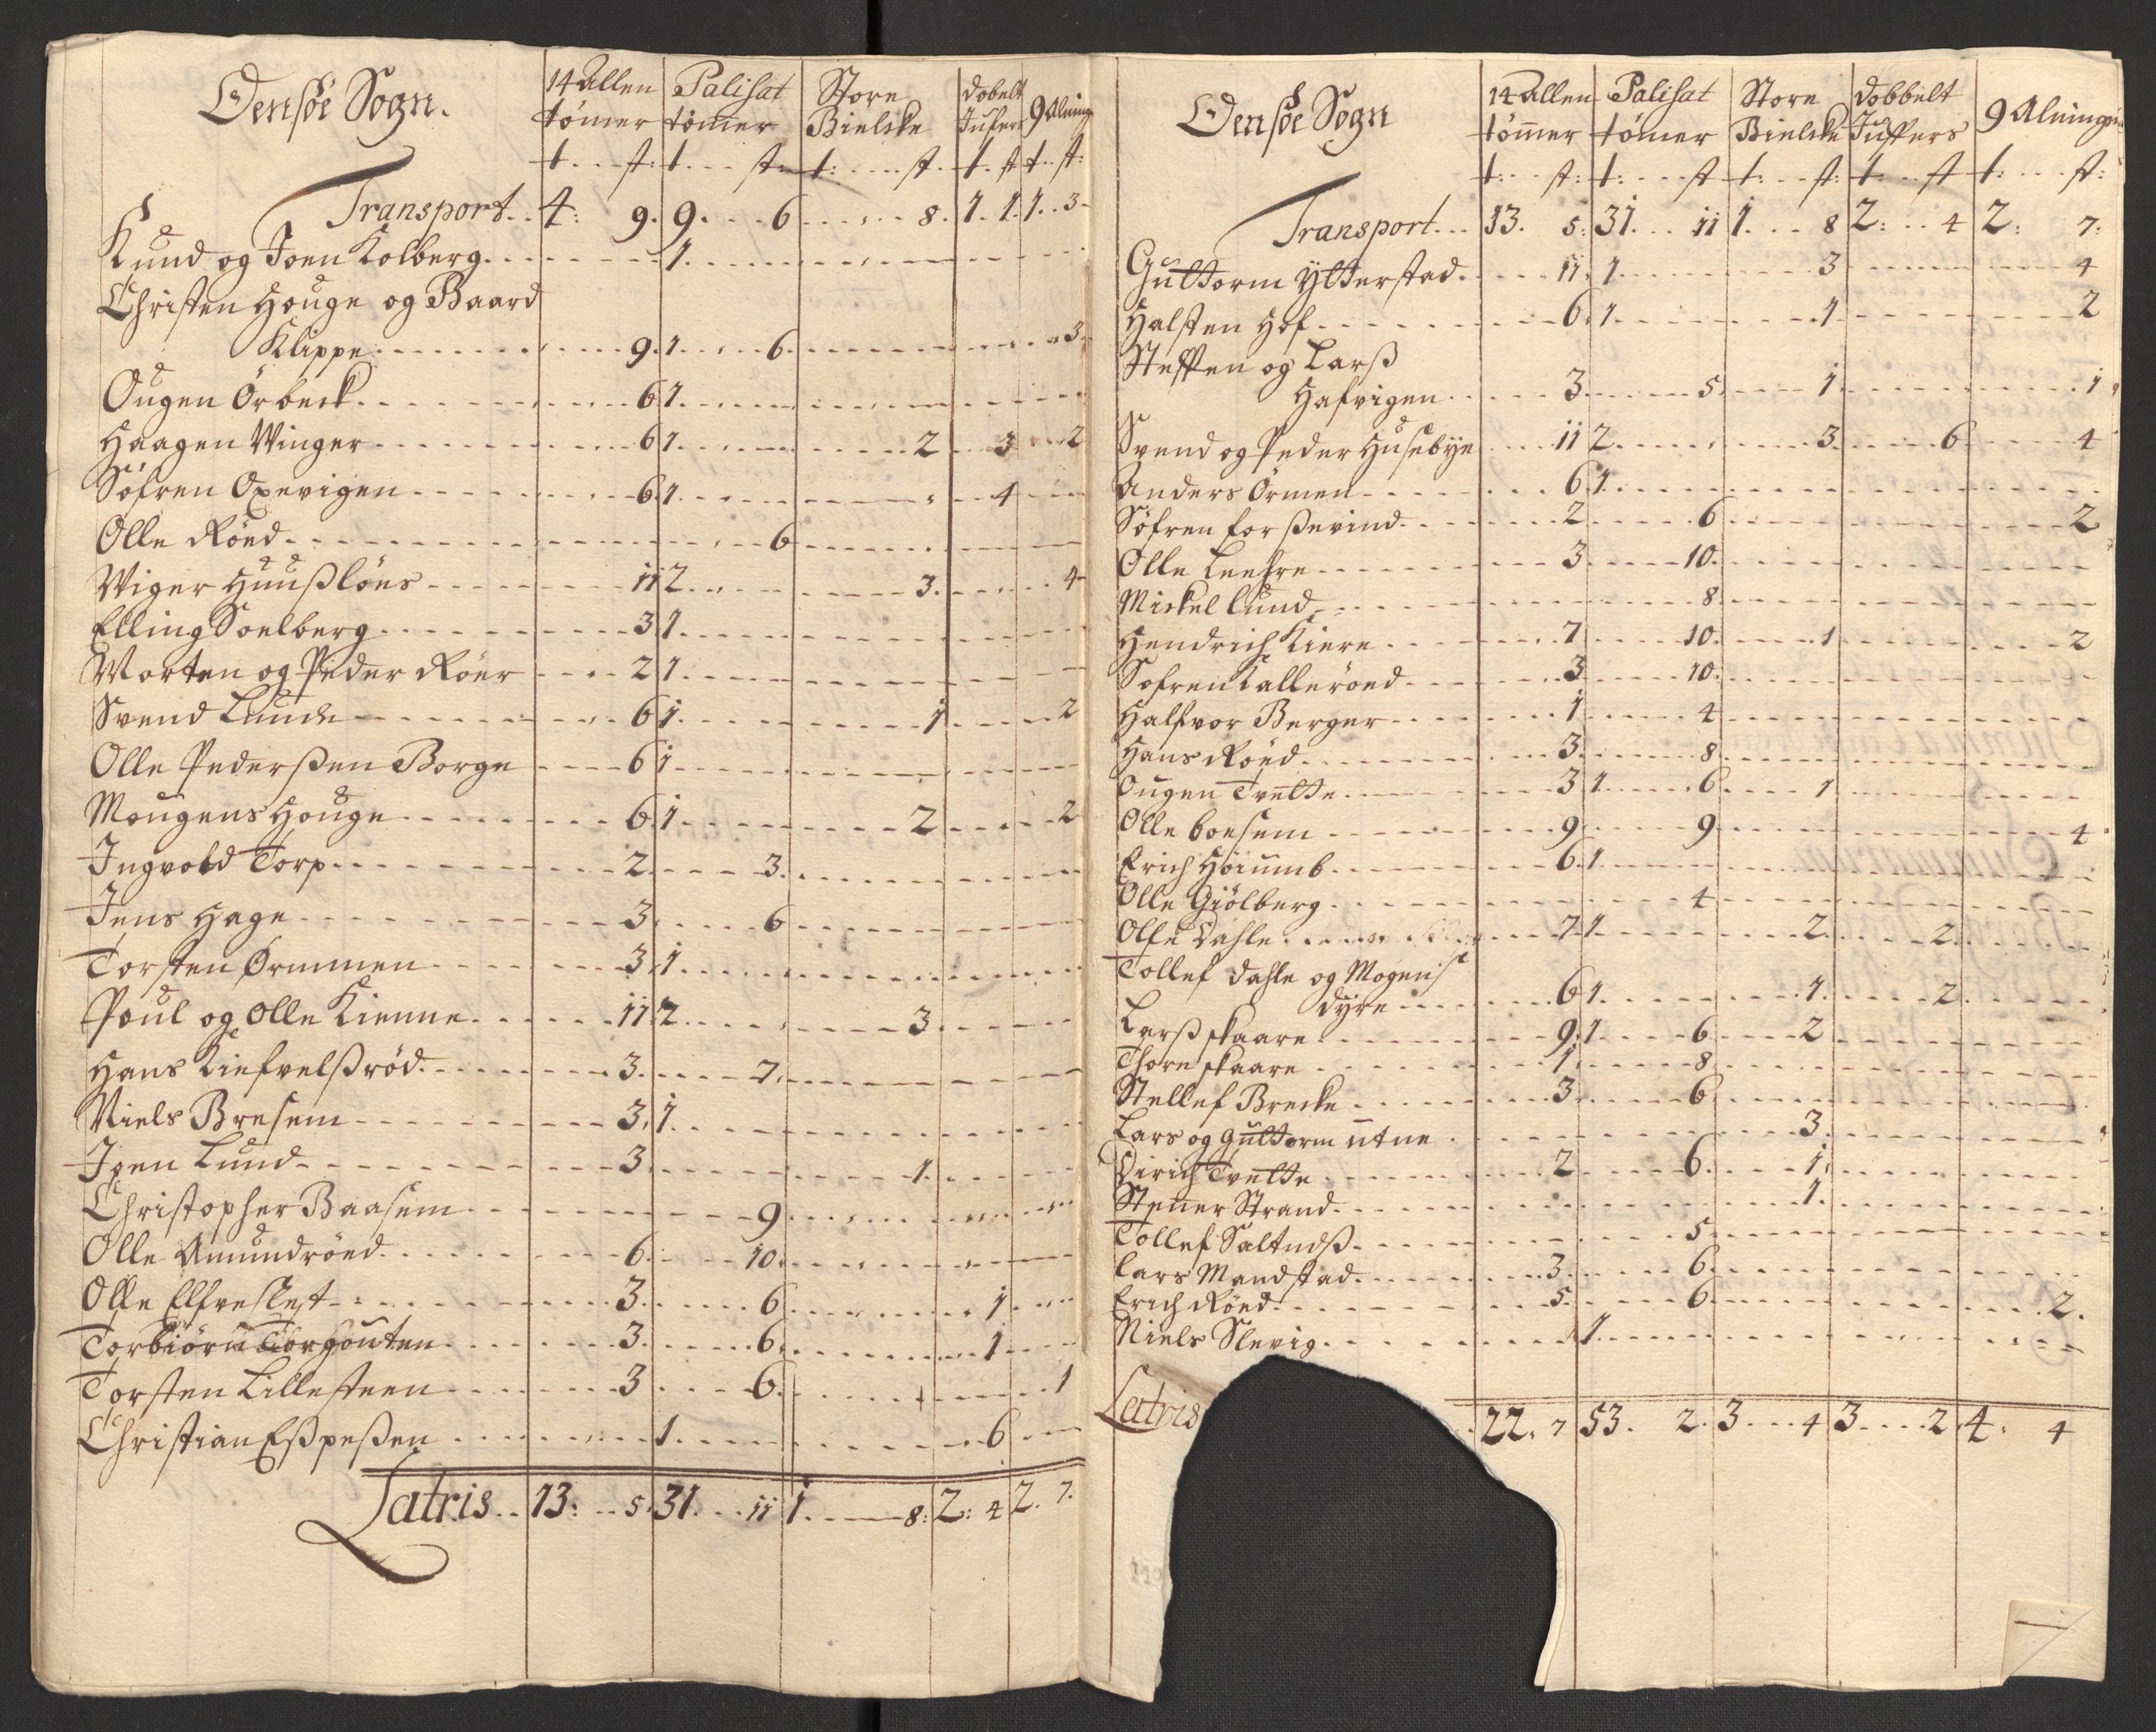 Oensöe Sogn.
14 Allen tömer Palisat tömer Store Bielcke dobelt Jufers 9 Alning
t: st: t: st: t: st: t: st: t: st:
Transport 4: 9. 9. 6 8. 1. 1. 1. 3
Knud og Joen Kolberg 1
Christen Houge og Baard
Klippe 9. 1 6 3
Ougen Örbeck 6 1
Haagen Winger 6 1 2 3 2
Söfren Oxevigen 6 1 4
Olle Röed 6
Wiger Huußlöes 11 2 3 4
Elling Soelberg 3 1
Morten og Peder Röer 2 1
Svend Lunde 6 1 1 2
Olle Pederßen Borge 6 1
Mougens Houge 6 1 2 2
Ingvold Torp 2 3
Jens Hage 3 6
Torsten Örmmen 3 1
Poul og Olle Kienne 11 2 3
Hans Kiefvelßröd 3 7
Niels Bresem 3 1
Joen Lund 3 1
Christopher Baasem 9
Olle Amundröed 6 10
Olle Elfveslet 3 6 1
Torbiörn Torgouten 3 6 1
Torsten Lillesteen 3 6 1
Christian Eßpeßen 1 6
Latris 13: 5. 31. 11 1. 8: 2: 4 2. 7.
Oensöe Sogn
14 Allen tömmer Palisat tömer Store Bielcke dobbelt Juffers 9 Alninger
t: st: t: st t: st: t: st t: st:
Transport 13. 5: 31. 11 1. 8 2: 4 2: 7:
Guttorm Ytterstad 11. 1 3 4
Halsten Hof 6. 1 1 2
Steffen og Larß
Hafvigen 3 5 1 1
Svend og Peder Husebye 11 2 3 6 4
Anders Örmen 6 1
Söfren forßevind 2 6 2
Olle Leehre 3 10
Mickel Lund 8
Hendrich Kiere 7 10 1 2
Sofren Kalleröed 3 10
Halfvor Berger 1 4
Hans Röed 3 8
Ougen Tvette 3 1 6 1
Olle boesem 9 9 4
Erich Höiumb 6. 1
Olle Giölberg 4
Olle Dahle 7 1 2 2
Tollef Dahle og Mogens
Dyre 6 1 1 2
Larß skaare 9. 1 6 2
Thore skaare 1 8
Stellef Brecke 3 6
Lars og Guttorm utne 3
Dirich Tvette 2 6 1
Stener Strand 1
Tollef Saltneß 5
Lars Mandstad 3 6
Erich Röed 5 6 2.
Niels Slevig 1
Latris 22. 7 53. 2. 3 4 3 2 4. 4